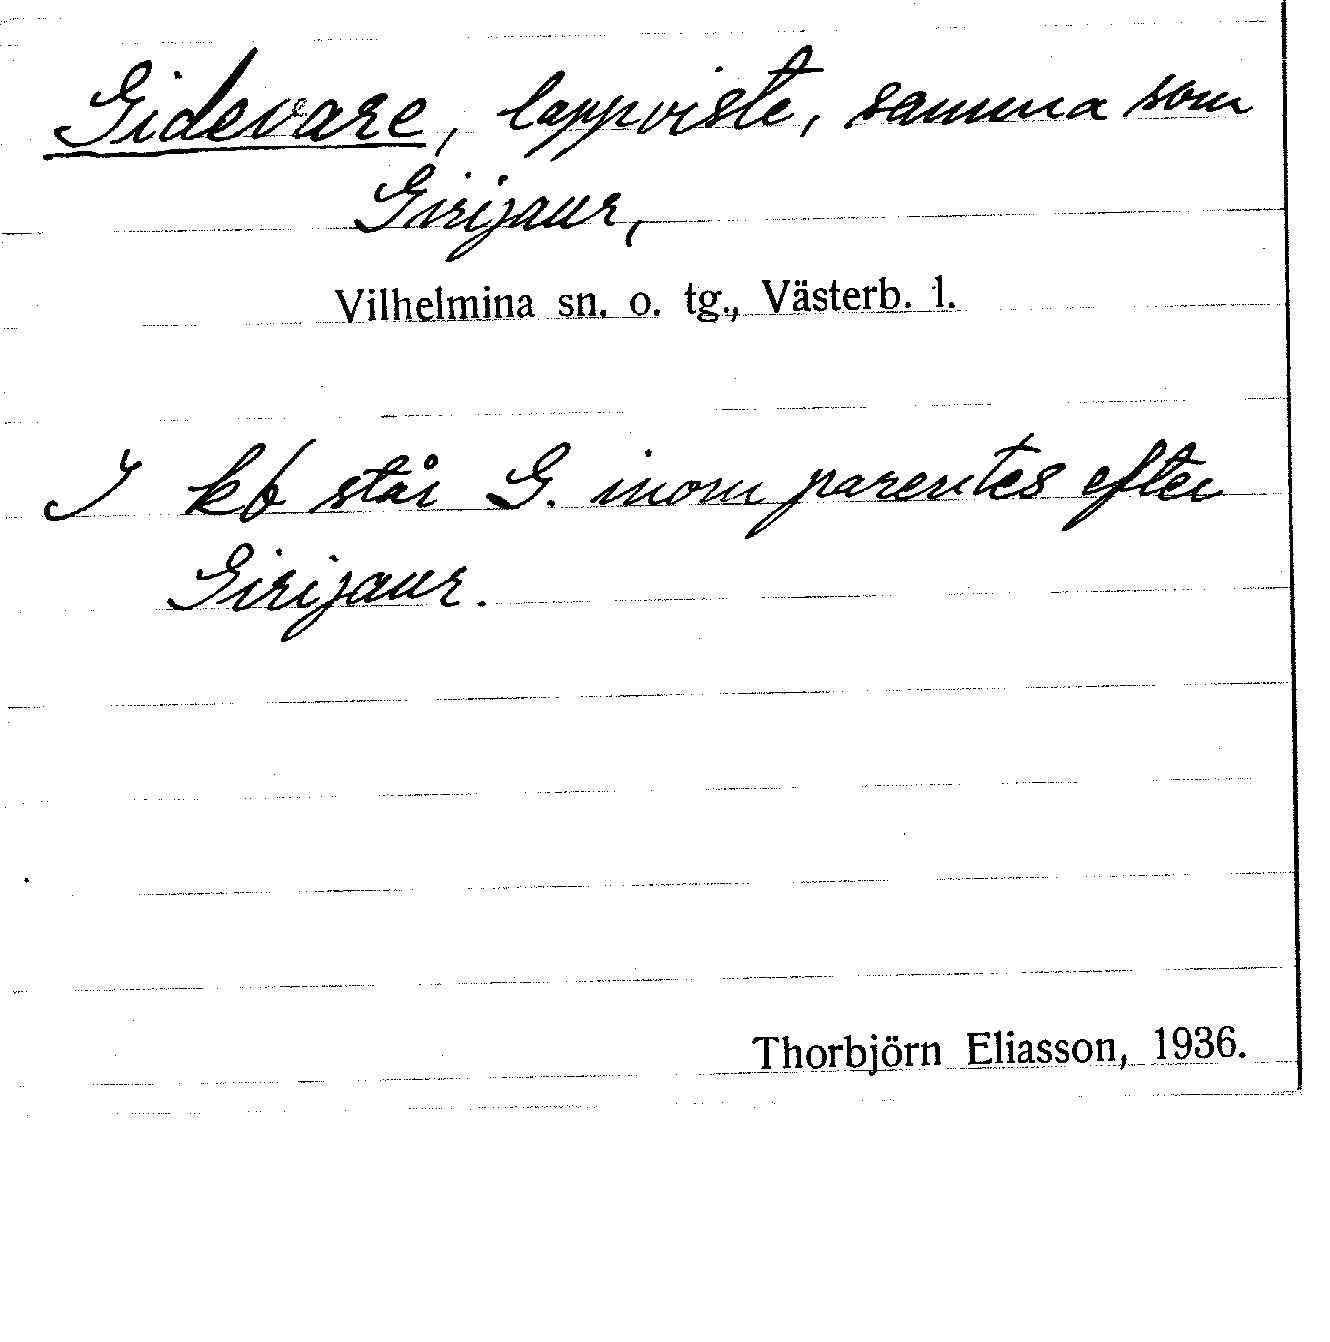 Gidevare, lappviste, samma som
Girijaur,
Vilhelmina sn. o. tg., Västerb. l.
I kb står G. inom parentes efter
Girijaur.
Thorbjörn Eliasson, 1936.